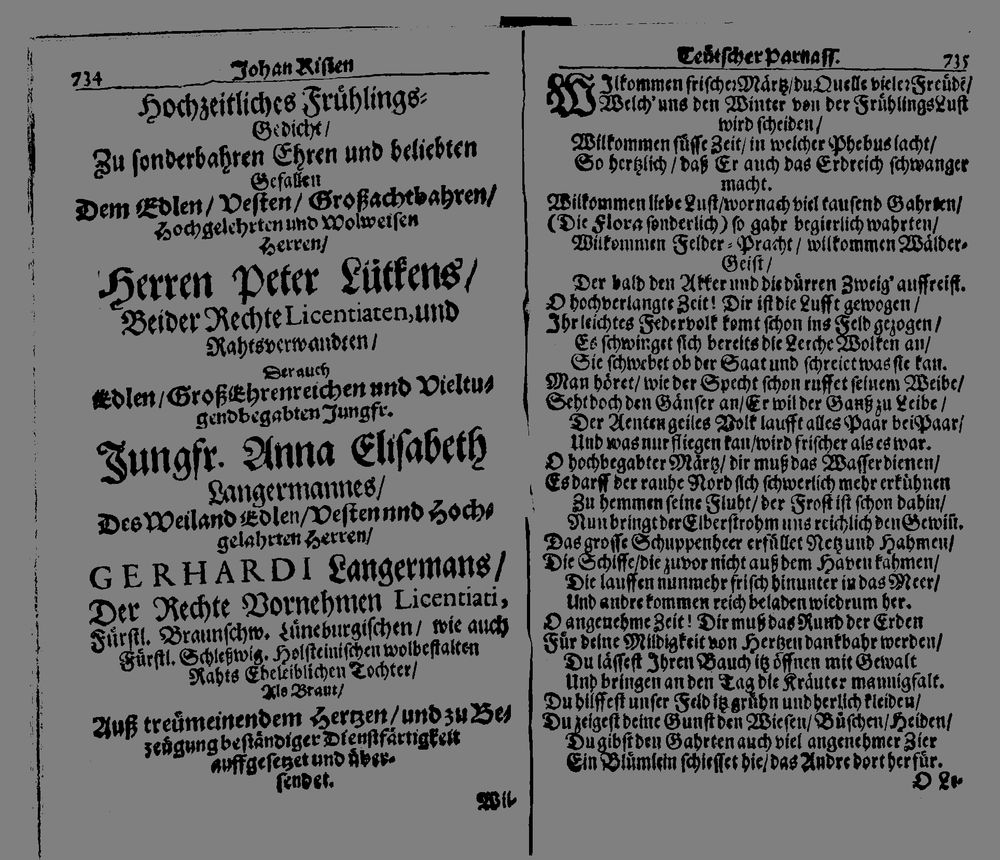 734
Johan Risten
Hochzeitliches Frühlings-
Gedicht/
Zu sonderbahren Ehren und beliebten
Gefallen
Dem Edlen/ Vesten/ Großachtbahren/
Hochgelehrten und Wolweisen
Herren/
Herren Peter Lütkens/
Beider Rechte Licentiaten, und
Rahtsverwandten/
Der auch
Edlen/ GroßEhrenreichen und Vieltu-
gendbegabten Jungfr.
Jungfr. Anna Elisabeth
Langermannes/
Des Weiland Edlen/ Vesten und Hoch-
gelahrten Herren/
GERHARDI Langermans/
Der Rechte Vornehmen Licentiati,
Fürstl. Braunschw. Lüneburgischen/ wie auch
Fürstl. Schleßwig. Holsteinischen wolbestalten
Rahts Eheleiblichen Tochter/
Als Braut/
Auß treümeinendem Hertzen/ und zu Be-
zeügung beständiger Dienstfärtigkeit
auffgesetzet und über-
sendet.
Wil-
Teütscher Parnass.
735
WIlkommen frischer Märtz/ du Quelle vieler Freüde/
Welch' uns den Winter von der Frühlings Lust
wird scheiden/
Wilkommen süsse Zeit/ in welcher Phebus lacht/
So hertzlich/ daß Er auch das Erdreich schwanger
macht.
Wilkommen liebe Lust/ wornach viel tausend Gahrten/
(Die Flora sonderlich) so gahr begierlich wahrten/
Wilkommen Felder-Pracht/ wilkommen Wälder-
Geist/
Der bald den Akker und die dürren Zweig' auffreist.
O hochverlangte Zeit! Dir ist die Lufft gewogen/
Ihr leichtes Federvolk komt schon ins Feld gezogen/
Es schwinget sich bereits die Lerche Wolken an/
Sie schwebet ob der Saat und schreiet was sie kan.
Man höret/ wie der Specht schon ruffet seinem Weibe/
Seht doch den Gänser an/ Er wil der Ganß zu Leibe/
Der Aenten geiles Volk laufft alles Paar bei Paar/
Und was nur fliegen kan/ wird frischer als es war.
O hochbegabter Märtz/ dir muß das Wasser dienen/
Es darff der rauhe Nord sich schwerlich mehr erkühnen
Zu hemmen seine Fluht/ der Frost ist schon dahin/
Nun bringt der Elberstrohm uns reichlich den Gewiñ.
Das grosse Schuppenheer erfüllet Netz und Hahmen/
Die Schiffe/ die zuvor nicht auß dem Haven kahmen/
Die lauffen nunmehr frisch hinunter in das Meer/
Und andre kommen reich beladen wiedrum her.
O angenehme Zeit! Dir muß das Rund der Erden
Für deine Mildigkeit von Hertzen dankbahr werden/
Du lässest Ihren Bauch itz öffnen mit Gewalt
Und bringen an den Tag die Kräuter mannigfalt.
Du hilffest unser Feld itz grühn und herlich kleiden/
Du zeigest deine Gunst den Wiesen/ Büschen/ Heiden/
Du gibst den Gahrten auch viel angenehmer Zier
Ein Blümlein schiesset hie/ das Andre dort herfür.
O Le-